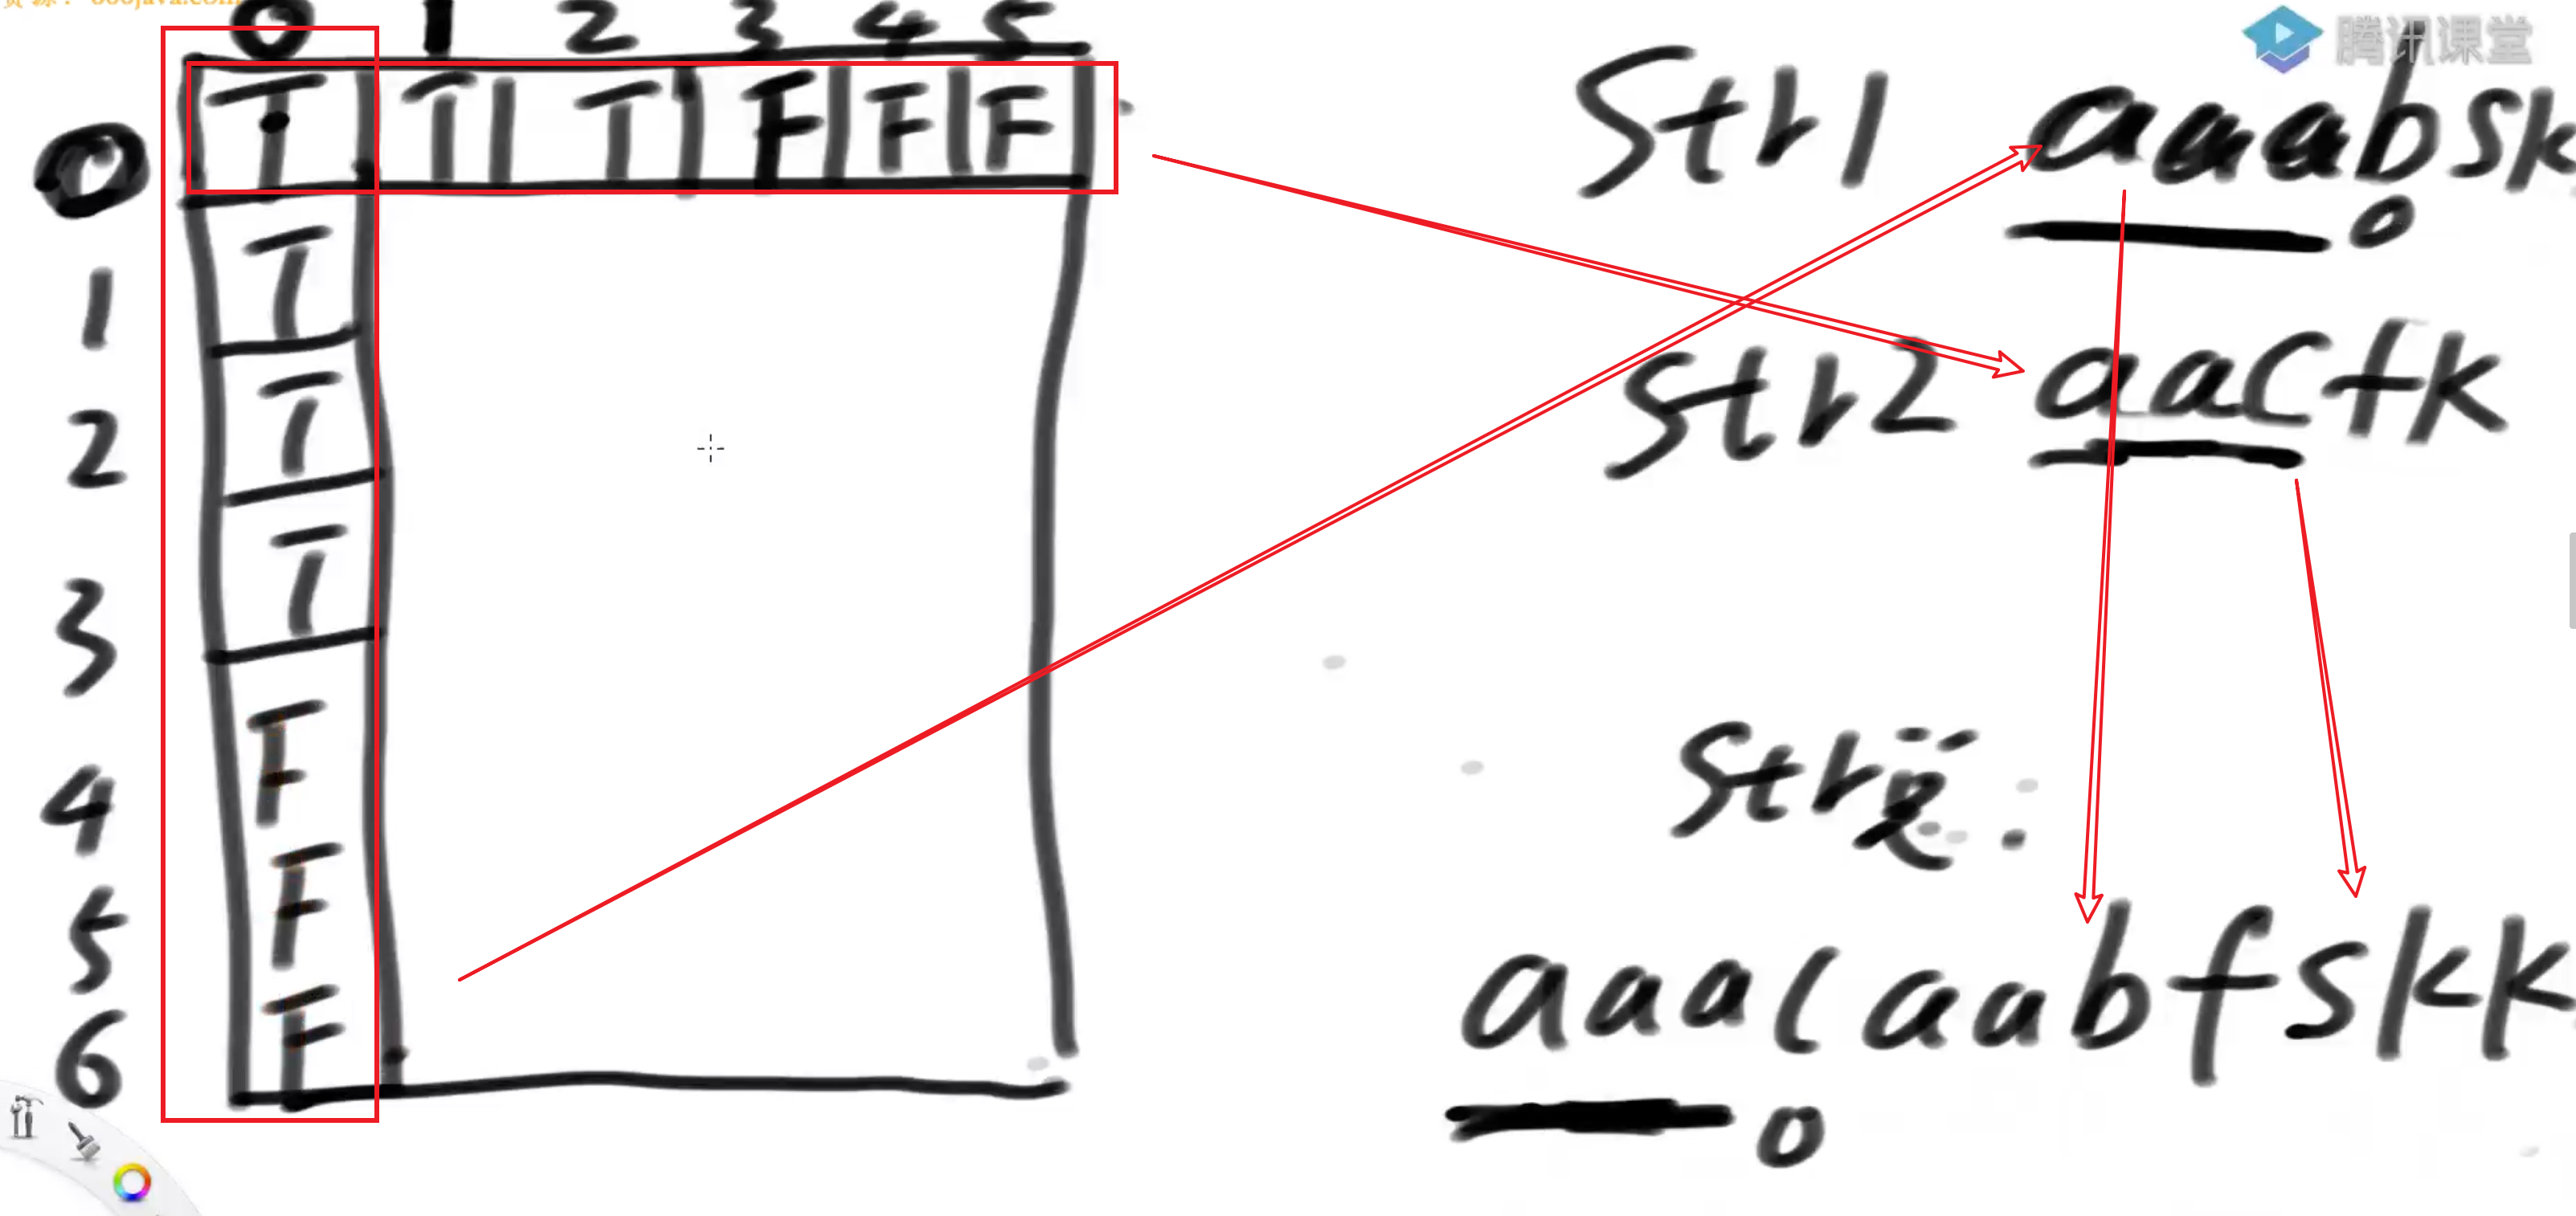 0 1 2 3 4 5
0 T T T F F F
1 T
2 T
3 T
4 F
5 F
6 F
腾讯课堂
Str1 aaabsk
0
Str2 aacfk
Str总:
aaacaabfskk
0